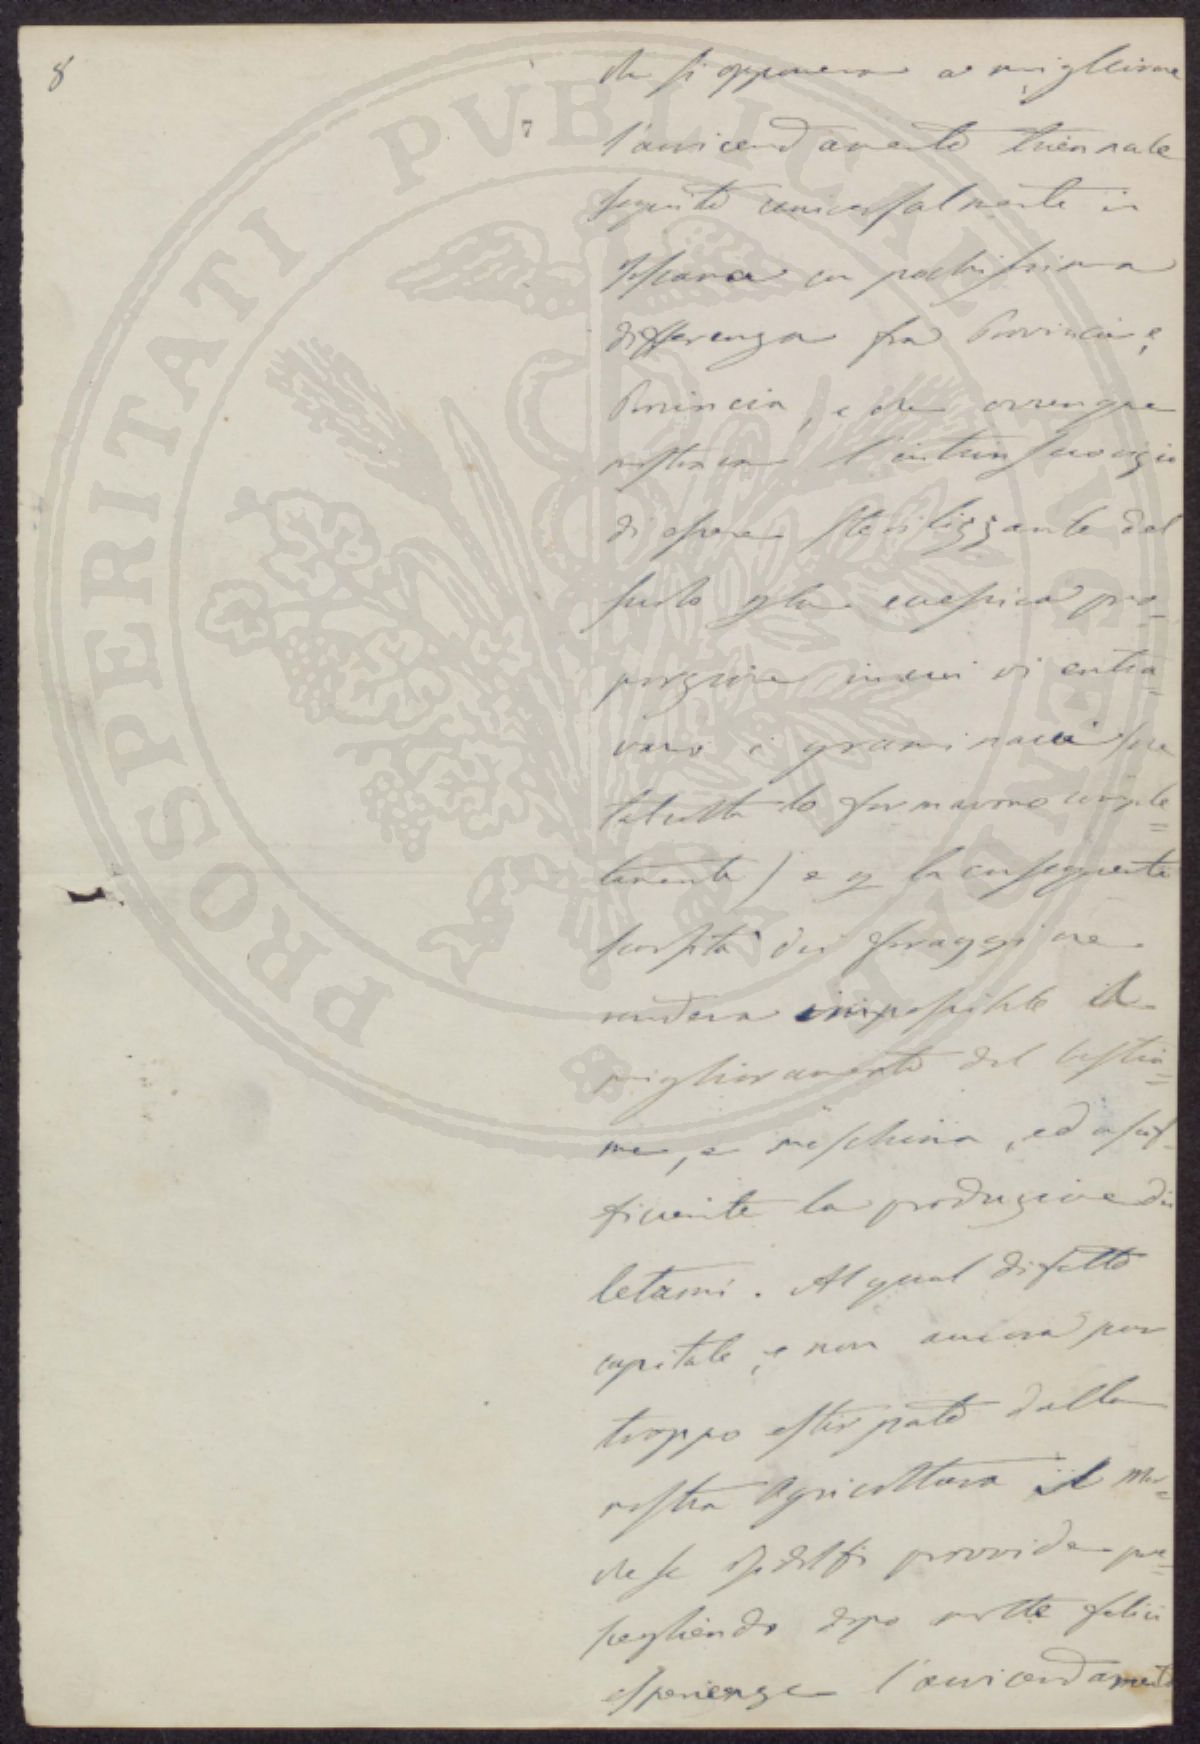 8
7
che si opponeva a migliorare
l'avvicendamento triennale
seguito universalmente in
Toscana con pochissima
differenza fra Provincia, e
Provincia, e che ovunque
mostrava l'
di essere sterilizzante del
suolo per la pro-
porzione in cui vi entra-
vano i graminacei (che
talvolta lo formavano comple=
tamente) e per la conseguente
scarsità dei foraggi che
rendeva impossibile il
miglioramento del bestia=
me, e meschina, ed insuf-
ficiente la produzione di
letami. Al qual difetto
capitale, e non ancora pur
troppo estirpato dalla
nostra Agricoltura il Mar=
chese Ridolfi provvide
scegliendo dopo molte felici
esperienze l'avvicendamento
PROSPERITATI PVBLICAE AVGENDAE